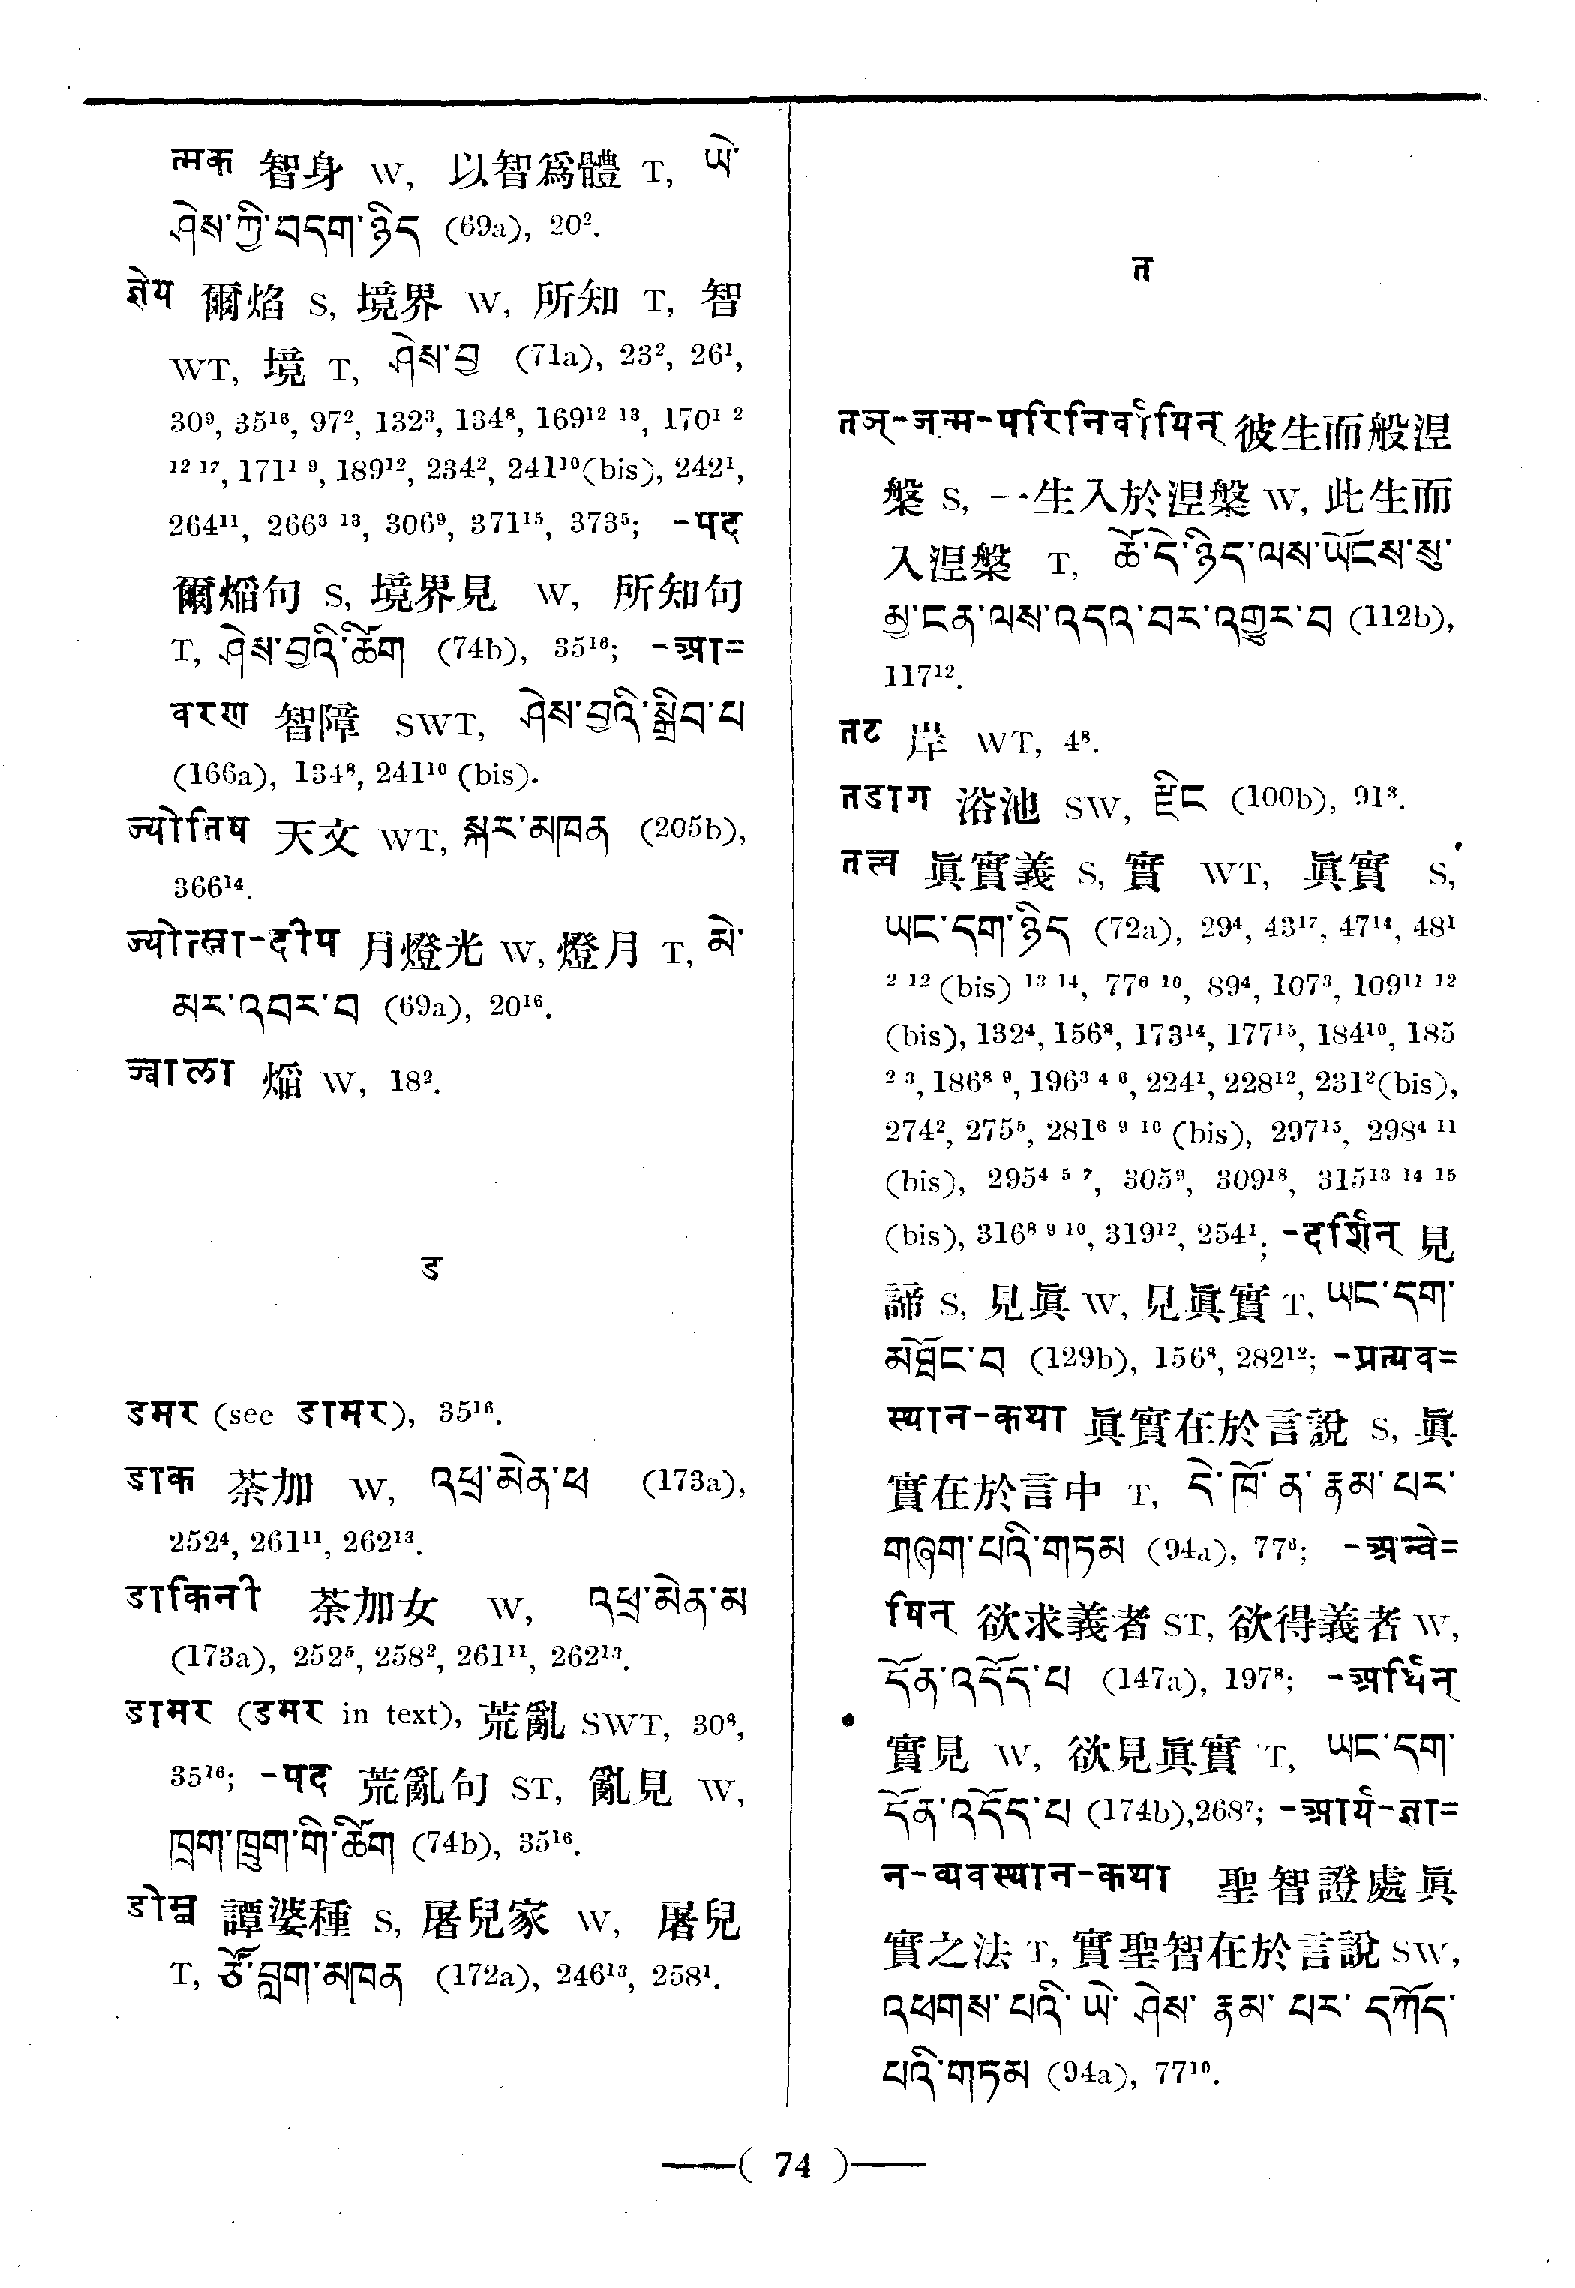 त्मक 智身 W, 以智爲體 T, ཡེ་
ཤེས་ཀྱི་བདག་ཉིད (69a), 20².
ज्ञेय 爾焰 S, 境界 W, 所知 T, 智
WT, 境 T, ཤེས་བྱ (71a), 23², 26¹,
30⁹, 35¹⁶, 97², 132³, 134⁸, 169¹² ¹³, 170¹ ²
¹² ¹⁷, 171¹ ⁹, 189¹², 234², 241¹⁰(bis), 242¹,
264¹¹, 266³ ¹³, 306⁹, 371¹⁵, 373⁵; -पद
爾熖句 S, 境界見 W, 所知句
T, ཤེས་བྱའི་ཚིག (74b), 35¹⁶; -आ=
वरण 智障 SWT, ཤེས་བྱའི་སྒྲིབ་པ
(166a), 134⁸, 241¹⁰ (bis).
ज्योतिष 天文 WT, སྐར་མཁན (205b),
366¹⁴.
ज्योत्स्ना-दीप 月燈光 W, 燈月 T, མེ་
མར་འབར་བ (69a), 20¹⁶.
ज्वाला 熖 W, 18².
ड
डमर (see डामर), 35¹⁶.
डाक 茶加 W, འཕྲ་མེན་ཕ (173a),
252⁴, 261¹¹, 262¹³.
डाकिनी 荼加女 W, འཕྲ་མེན་མ
(173a), 252⁵, 258², 261¹¹, 262¹³.
डामर (डमर in text), 荒亂 SWT, 30⁸,
35¹⁶; -पद 荒亂句 ST, 亂見 W,
ཁྲག་ཁྲུག་གི་ཚིག (74b), 35¹⁶.
डोम्ब 譚婆種 S, 屠兒家 W, 屠兒
T, ཙོ་བླག་མཁན (172a), 246¹³, 258¹.
त
तञ्-जन्म-परिनिर्वायिन् 彼生而般涅
槃 S, 一生入於涅槃 W, 此生而
入涅槃 T, ཚེ་དེ་ཉིད་ལས་ཡོངས་སུ་
མྱ་ངན་ལས་འདའ་བར་འགྱུར་བ (112b),
117¹².
तट 岸 WT, 4⁸.
तडाग 浴池 SW, རྫིང (100b), 91⁸.
तत्त्व 眞實義 S, 實 WT, 眞實 S,
ཡང་དག་ཉིད (72a), 29⁴, 43¹⁷, 47¹⁴, 48¹
² ¹² (bis) ¹³ ¹⁴, 77⁶ ¹⁰, 89⁴, 107³, 109¹¹ ¹²
(bis), 132⁴, 156⁸, 173¹⁴, 177¹⁵, 184¹⁰, 185
² ³, 186⁸ ⁹, 196³ ⁴ ⁶, 224¹, 228¹², 231²(bis),
274², 275⁵, 281⁶ ⁹ ¹⁰ (bis), 297¹⁵, 298⁴ ¹¹
(bis), 295⁴ ⁵ ⁷, 305⁹, 309¹⁸, 315¹³ ¹⁴ ¹⁵
(bis), 316⁸ ⁹ ¹⁰, 319¹², 254¹; -दर्शिन् 見
諦 S, 見眞 W, 見眞實 T, ཡང་དག་
མཐོང་བ (129b), 156⁸, 282¹²; -प्रत्यव=
स्थान-कथा 眞實在於言說 S, 眞
實在於言中 T, དེ་ཁོ་ན་རྣམ་པར་
གཞག་པའི་གཏམ (94a), 77⁶; -अन्वे=
षिन् 欲求義者 ST, 欲得義者 W,
དོན་འདོད་པ (147a), 197⁸; -अर्थिन्
實見 W, 欲見眞實 T, ཡང་དག་
དོན་འདོད་པ (174b), 268⁷; -आर्य-ज्ञा=
न-व्यवस्थान-कथा 聖智證處眞
實之法 T, 實聖智在於言說 SW,
འཕགས་པའི་ཡེ་ཤེས་རྣམ་པར་དཀོད་
པའི་གཏམ (94a), 77¹⁰.
—( 74 )—